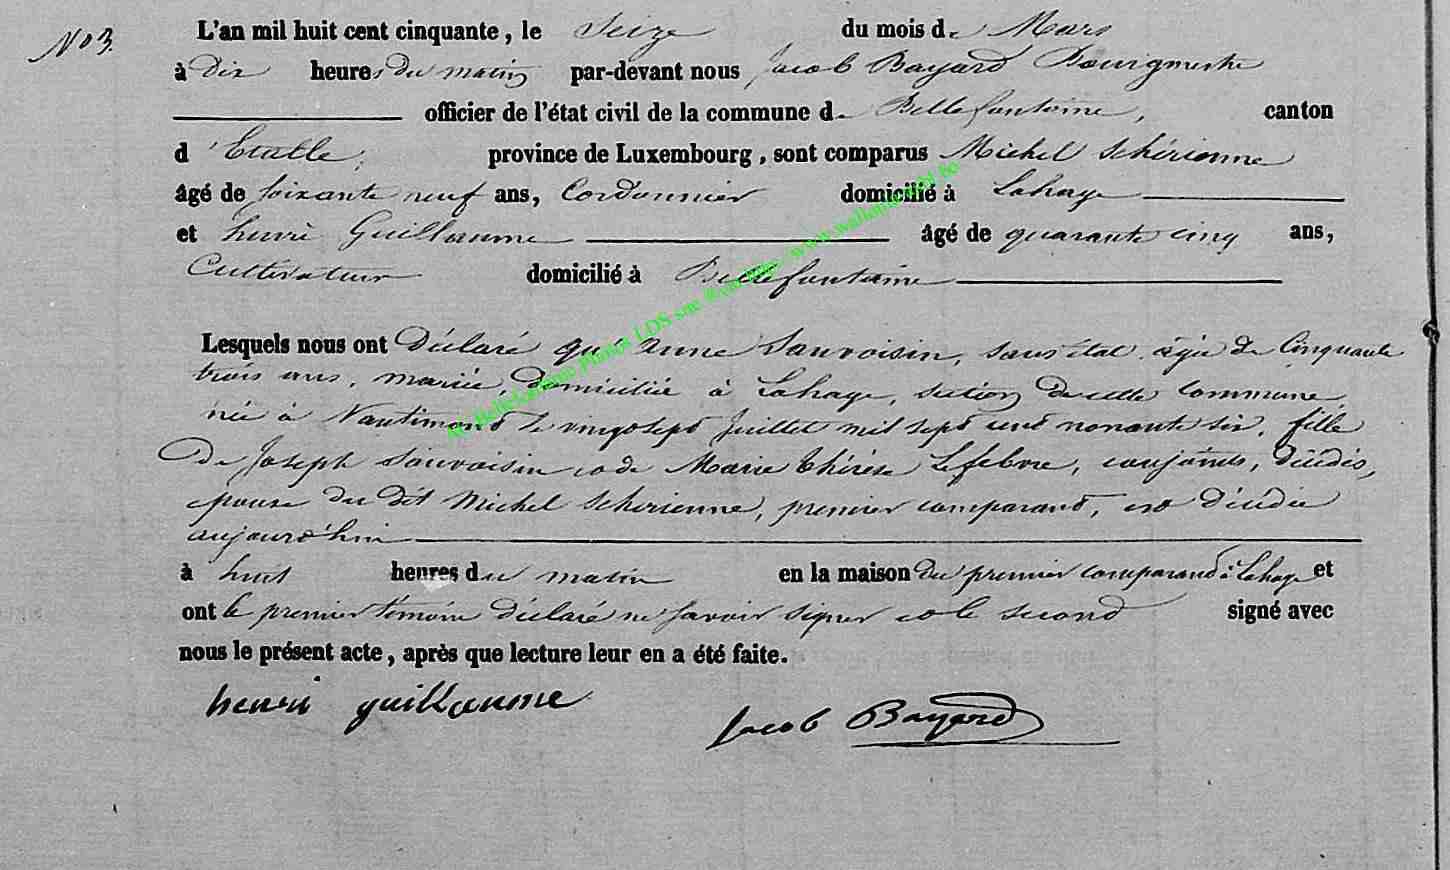 No 3.
L'an mil huit cent cinquante, le Seize du mois de Mars
à Dix heures du matin par-devant nous Jacob Bayard Bourgmestre
officier de l'état civil de la commune de Bellefontaine, canton
d'Etalle, province de Luxembourg, sont comparus Michel Schérienne
âgé de soixante neuf ans, Cordonnier domicilié à Lahage
et henri Guillaume âgé de quarante cinq ans,
Cultivateur domicilié à Bellefontaine
Lesquels nous ont Déclaré qu'anne Sauvoisin, sans état, âgée de Cinquante
trois ans, mariée, domiciliée à Lahage, section de cette Commune,
née à Nantimond le vingt sept Juillet mil sept cent nonante six, fille
De Joseph Sauvoisin et de Marie thérèse Lefebvre, conjoints, décédés,
epouse du dit Michel Scherienne, premier comparant, est décédée
aujourd'hui
à huit heures du matin en la maison du premier comparant à Lahage et
ont le premier témoin déclaré ne savoir signer et le second signé avec
nous le présent acte, après que lecture leur en a été faite.
henri guillaume
Jacob Bayard